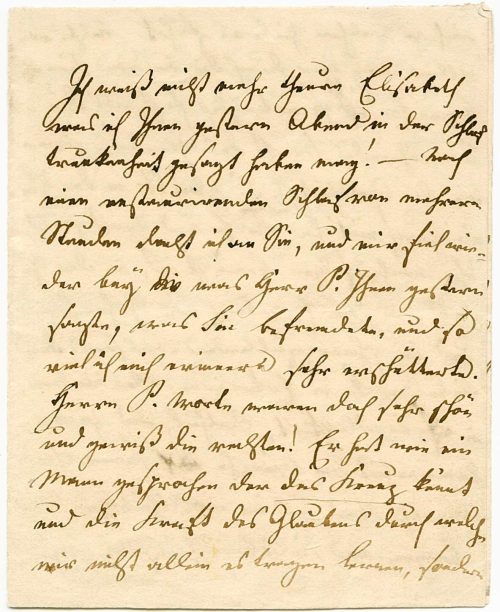 Ich weiß nicht mehr theure Elisabeth
was ich Ihnen gestern Abend in der Schlaf
trunkenheit gesagt haben mag! — Nach
einen restaurirenden Schlaf von mehrern
Stunden dacht ich an Sie, und mir fiel wie-
der bey was Herr P. Ihnen gestern
sagte, was Sie befremdete, und so
viel ich mich erinnere sehr erschütterte.
Herrn P. Worte waren doch sehr schön
und gewiß die rechten! Er hat wie ein
Mann gesprochen der das Kreuz kennt
und die Kraft des Glaubens durch welche
wir nicht allein es tragen lernen, sondern